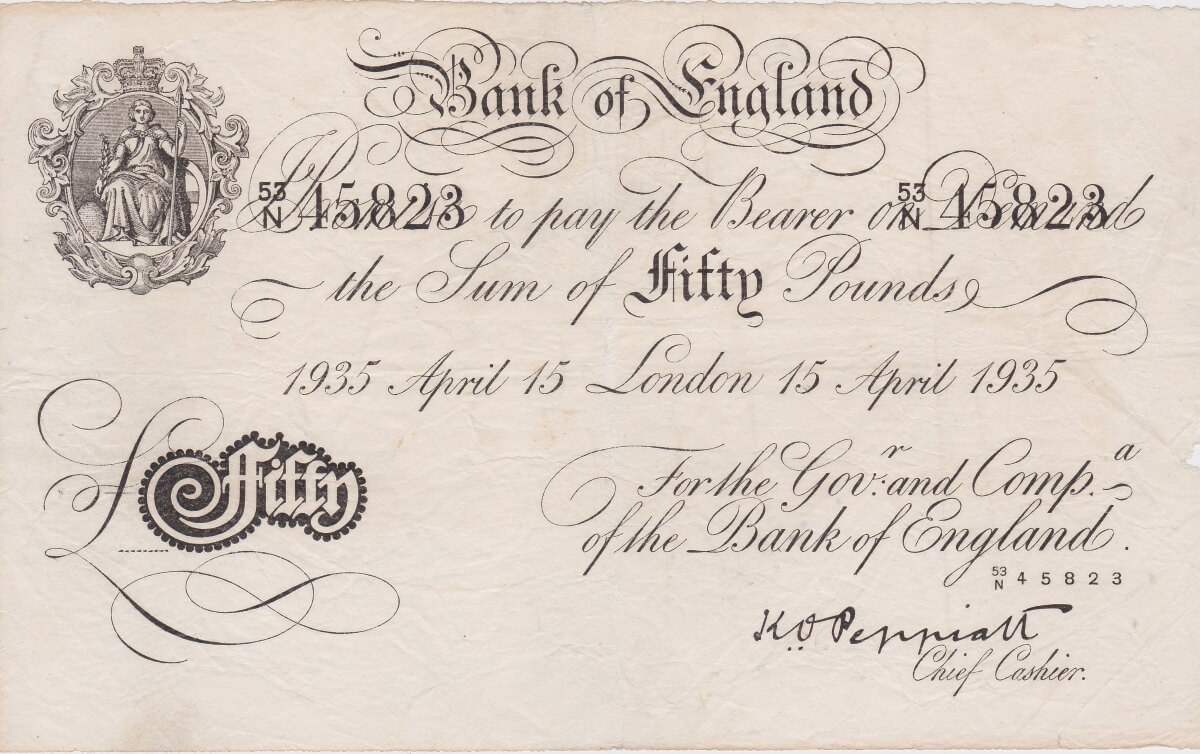 Bank of England
53/N 45823 53/N 45823
I Promise to pay the Bearer on Demand
the Sum of Fifty Pounds
1935 April 15 London 15 April 1935
£ Fifty
For the Gov.r and Comp.a
of the Bank of England.
53/N 45823
K. O. Peppiatt
Chief Cashier.